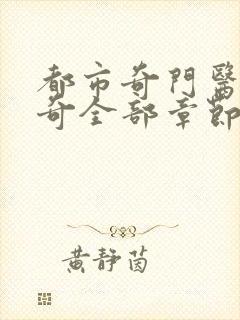 都市奇門醫
奇全部章節
黃靜茵